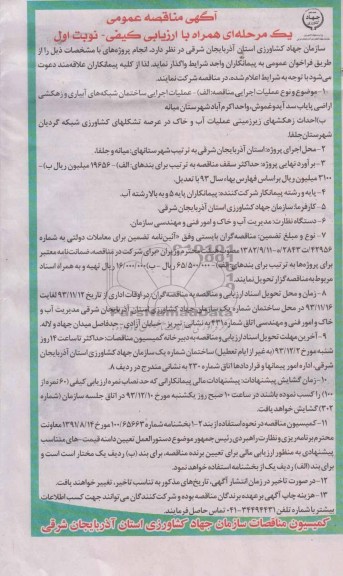 آگهی مناقصه عمومی
یک مرحله‌ای همراه با ارزیابی کیفی- نوبت اول
سازمان جهاد کشاورزی استان آذربایجان شرقی در نظر دارد، انجام پروژه‌های با مشخصات ذیل را از
طریق فراخوان عمومی به پیمانکاران واجد شرایط واگذار نماید. لذا از کلیه پیمانکاران علاقه‌مند دعوت
می‌شود با توجه به شرایط اعلام شده، در مناقصه شرکت نمایند.
۱- موضوع و نوع عملیات اجرایی مناقصه: الف) عملیات اجرایی ساختمان شبکه‌های آبیاری و زهکشی
اراضی پایاب سد آیدوغموش، واحد اکرم‌آباد شهرستان میانه
ب) احداث زهکشهای زیرزمینی عملیات آب و خاک در عرصه تشکلهای کشاورزی شبکه گردیان
شهرستان جلفا.
۲- محل اجرای پروژه: استان آذربایجان شرقی به ترتیب شهرستانهای: میانه و جلفا.
۳- برآورد نهایی پروژه: حداکثر سقف مناقصه به ترتیب برای بندهای: الف)- ۱۹۶۵۶ میلیون ریال ب)-
۳۱۰۰ میلیون ریال براساس فهارس بهاء سال ۹۳ با تعدیل.
۴- پایه و رشته پیمانکار شرکت‌کننده: پیمانکاران پایه ۵ و به بالا رشته آب.
۵- کارفرما: سازمان جهاد کشاورزی استان آذربایجان شرقی.
۶- دستگاه نظارت: مدیریت آب و خاک و امور فنی و مهندسی سازمان.
۷- نوع و مبلغ تضمین: مناقصه‌گران بایستی وفق «آئین‌نامه تضمین برای معاملات دولتی به شماره
۴۲۹۵۶/ت۲۸۴۳۳ه-۱۳۸۲/۹/۱۱ محترم وزیران» برای شرکت در مناقصه، ضمانت‌نامه معتبر
برای پروژه‌ها به ترتیب برای بندهای: الف)- ریال -ب) ۱۶۰/۰۰۰/۰۰۰ ریال تهیه و به همراه اسناد
مربوطه به مناقصه‌گزار تحویل نمایند.
۸- زمان و محل تحویل اسناد ارزیابی و مناقصه به مناقصه‌گران: در اوقات اداری از تاریخ ۹۳/۱۱/۱۲ لغایت
۹۳/۱۱/۱۶ در محل ساختمان شماره یک سازمان جهاد کشاورزی استان آذربایجان شرقی مدیریت آب و
خاک و امور فنی و مهندسی اتاق شماره ۴۳۱ به نشانی: تبریز- خیابان آزادی- حدفاصل میدان جهاد و لاله
۹- آخرین مهلت تحویل اسناد ارزیابی و مناقصه به دبیرخانه کمیسیون مناقصات: حداکثر تا ساعت ۱۴ روز
شنبه مورخ ۹۳/۱۲/۲ (به غیر از ایام تعطیل) ساختمان شماره یک سازمان جهاد کشاورزی استان آذربایجان
شرقی، اداره امور پیمانها و قراردادها اتاق شماره ۲۳۰ به نشانی مندرج در ردیف ۸.
۱۰- زمان گشایش پیشنهادات: پیشنهادات مالی پیمانکارانی که حد نصاب نمره ارزیابی کیفی (۶۰ نمره از
۱۰۰) را کسب نموده باشند در ساعت ۱۰ صبح روز یکشنبه مورخ ۹۳/۱۲/۱۰ در اتاق جلسه سازمان (شماره
۳۰۲) گشایش خواهد یافت.
۱۱- کمیسیون مناقصه در نحوه استفاده از بند ۲-۱ بخشنامه شماره ۱۰۰/۶۵۶۶۳ مورخ ۱۳۹۱/۸/۱۴ معاونت
محترم برنامه‌ریزی و نظارت راهبردی رئیس جمهور موضوع دستورالعمل تعیین دامنه قیمت‌های متناسب
پیشنهادی به منظور ارزیابی مالی برای تعیین برنده مناقصه، برای بند (ب) ردیف یک مختار است است و
برای بند (الف) ردیف یک از بخشنامه استفاده خواهد نمود.
۱۲- در صورت تاخیر در زمان انتشار آگهی، تاریخ‌های مذکور به تناسب تاخیر، تغییر خواهند یافت.
۱۳- هزینه چاپ آگهی برعهده برندگان مناقصه بوده و شرکت‌کنندگان می‌توانند جهت کسب اطلاعات
بیشتر با شماره تلفن ۳۴۴۹۴۴۳۱-۰۴۱ تماس حاصل فرمایند.
کمیسیون مناقصات سازمان جهاد کشاورزی استان آذربایجان شرقی